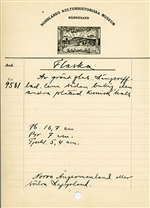 NORRLANDS KULTURHISTORISKA MUSEUM
HÄRNÖSAND
Flaska
9581.
Av grönt glas.
bad. ena sidan buktig den
andra plattad. Konisk hals
H. 16,7 cm
Br. 7 cm.
Tjockl 5,4 cm.
Norra Ångermanland eller
södra Lappland.